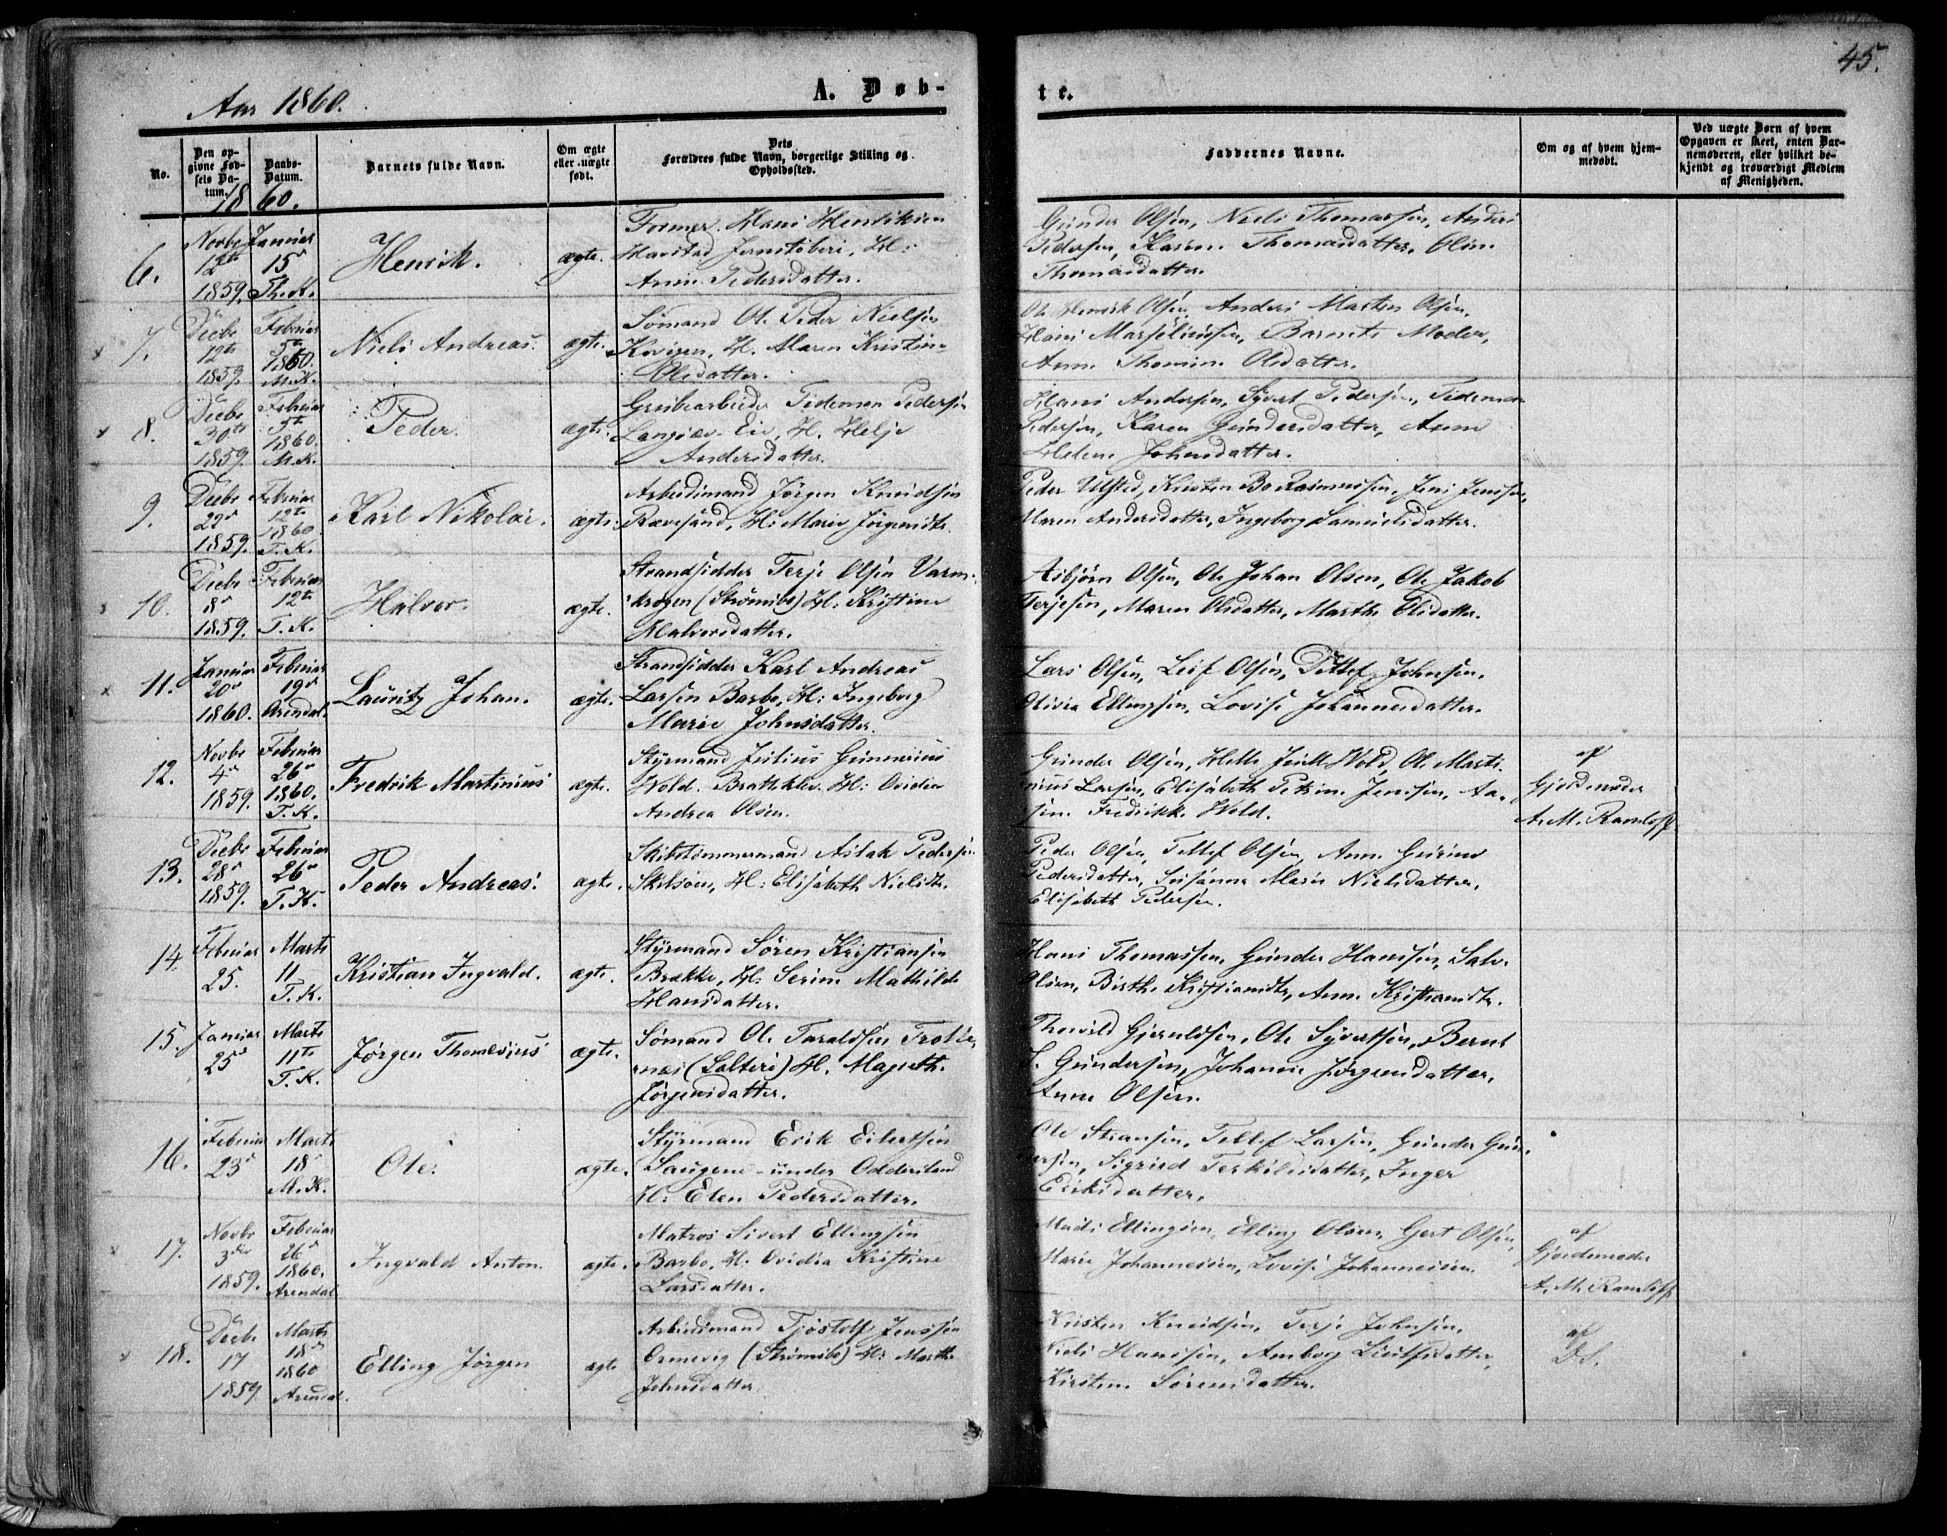 45.
Aar 1860.
A. Døb-
te.
No.
Den op-
givne Fød-
sels Da-
tum.
Daabs-
Datum.
Barnets fulde Navn.
Om ægte
eller uægte
født.
Dets
Forældres fulde Navn, borgerlige Stilling og
Opholdssted.
Faddernes Navne.
Om og af hvem hjem-
medøbt.
Ved uægte Børn af hvem
Opgaven er skeet, enten Bar-
nemoderen, eller hvilket be-
kjendt og troværdigt Medlem
af Menigheden.
1860.
6.
Novbr
12te
1859.
Januar
15de
Th. K.
Henrik.
ægte.
Former Hans Henriksen
Harstad Jernstøberi, H:
Anne Pedersdatter.
Gunder Olsen, Niels Thomassen, Anders
Pedersen, Karen Thomasdatter, Oline
Thomasdatter.
7.
Decbr
12te
1859.
Februar
5te
1860.
M. K.
Niels Andreas.
ægte.
Sømand Ole Peder Nielsen
Kovigen, H. Maren Kristine
Olsdatter.
Ole Henrik Olsen, Anders Martin Olsen,
Hans Marseliussen, Barnets Moder,
Anne Thomine Olsdatter.
8.
Decbr
30te
1859.
Februar
5te
1860.
M. K.
Peder.
ægte.
Grubearbeider Tideman Pedersen
Langsæv-Eie, H. Helje
Andersdatter.
Hans Andersen, Syvert Pedersen, Tideman
Pedersen, Karen Gundersdatter, Anne
Helene Johnsdatter.
9.
Decbr
29de
1859.
Februar
12te
1860.
T. K.
Karl Nikolai.
ægte.
Arbeidsmand Jørgen Knudsen
Rævesand, H: Marie Jørgensdtr.
Peder Ulsted, Kristen Bo Rasmussen, Jens Jenssen,
Maren Andersdatter, Ingeborg Samuelsdatter.
10.
Decbr
8de
1859.
Februar
12te
T. K.
Halvor.
ægte.
Strandsidder Terje Olsen Varm-
krogen (Strømsbo) H: Kristine
Halvorsdatter.
Asbjørn Olsen, Ole Johan Olsen, Ole Jakob
Terjesen, Maren Olsdatter, Marthe Olsdatter.
11.
Januar
20de
1860.
Februar
19de
Arendal.
Lauritz Johan.
ægte.
Strandsidder Karl Andreas
Larsen Barbo, H: Ingeborg
Marie Johnsdatter.
Lars Olsen, Leif Olsen, Dittlef Johnsen,
Olivia Ellingsen, Lovise Johannesdatter.
12.
Novbr
4de
1859.
Februar
26de
1860.
T. K.
Fredrik Martinius
ægte.
Styrmand Julius Gunnerius
Wold. Bratteklev H: Ovidia
Andrea Olsen.
Gunder Olsen, Helle Juell Wold, Ole Marti-
nius Larsen, Elisabeth Petrine Jenssen, Aa-
sine Fredrikke Wold.
af
Gjordemoder
A. M. Ramløff
13.
Decbr
28de
1859.
Februar
26de
T. K.
Peder Andreas.
ægte.
Skibstømmermand Aslak Pedersen
Skilsøen, H: Elisabeth Nielsdtr.
Peder Olsen, Tellef Olsen, Anne Gurine
Pedersdatter, Susanne Marie Nielsdatter,
Elisabeth Pedersen.
14.
Februar
25.
Marts
11
T. K.
Kristian Ingvald.
ægte.
Styrmand Søren Kristiansen
Brække, H: Serine Mathilde
Hansdatter.
Hans Thomassen, Gunder Hansen, Salve
Olsen, Birthe Kristiansdtr, Anne Kristiansdtr.
15.
Januar
25de
Marts
11te
T. K.
Jørgen Thomesius
ægte.
Sømand Ole Taraldsen Trolle-
næs (Salteri) H. Magrethe
Jørgensdatter.
Thorvald Gjeruldsen, Ole Syvertsen, Bernt
S. Gundersen, Johanne Jørgensdatter,
Anne Olsen.
16.
Februar
23de
Marts
18de
M. K.
Ole.
ægte.
Styrmand Erik Eilertsen
Saugene under Oddersland
H: Elen Pedersdatter.
Ole Steansen, Tellef Larsen, Gunder Gun-
dersen, Sigried Terkilsdatter, Inger
Eriksdatter.
17.
Novbr
3die
1859.
Februar
26de
1860.
Arendal
Ingvald Anton.
ægte.
Matros Sivert Ellingsen
Barbo, H. Ovidia Kristine
Larsdatter.
Mads Ellingsen, Elling Olsen, Gert Olsen,
Marie Johannesen, Lovise Johannesen
af
Gjordemoder
A. M. Ramløff
18.
Decbr
17
1859
Marts
18de
1860
Arendal.
Elling Jørgen
ægte
Arbeidsmand Tjøstolf Jenssen
Ormevig (Strømsbo) H: Marthe
Johnsdatter
Kristen Knudsen, Terje Johnsen,
Niels Hanssen, Amborg Leulfsdatter,
Kirsten Sørensdatter.
af
Ds.